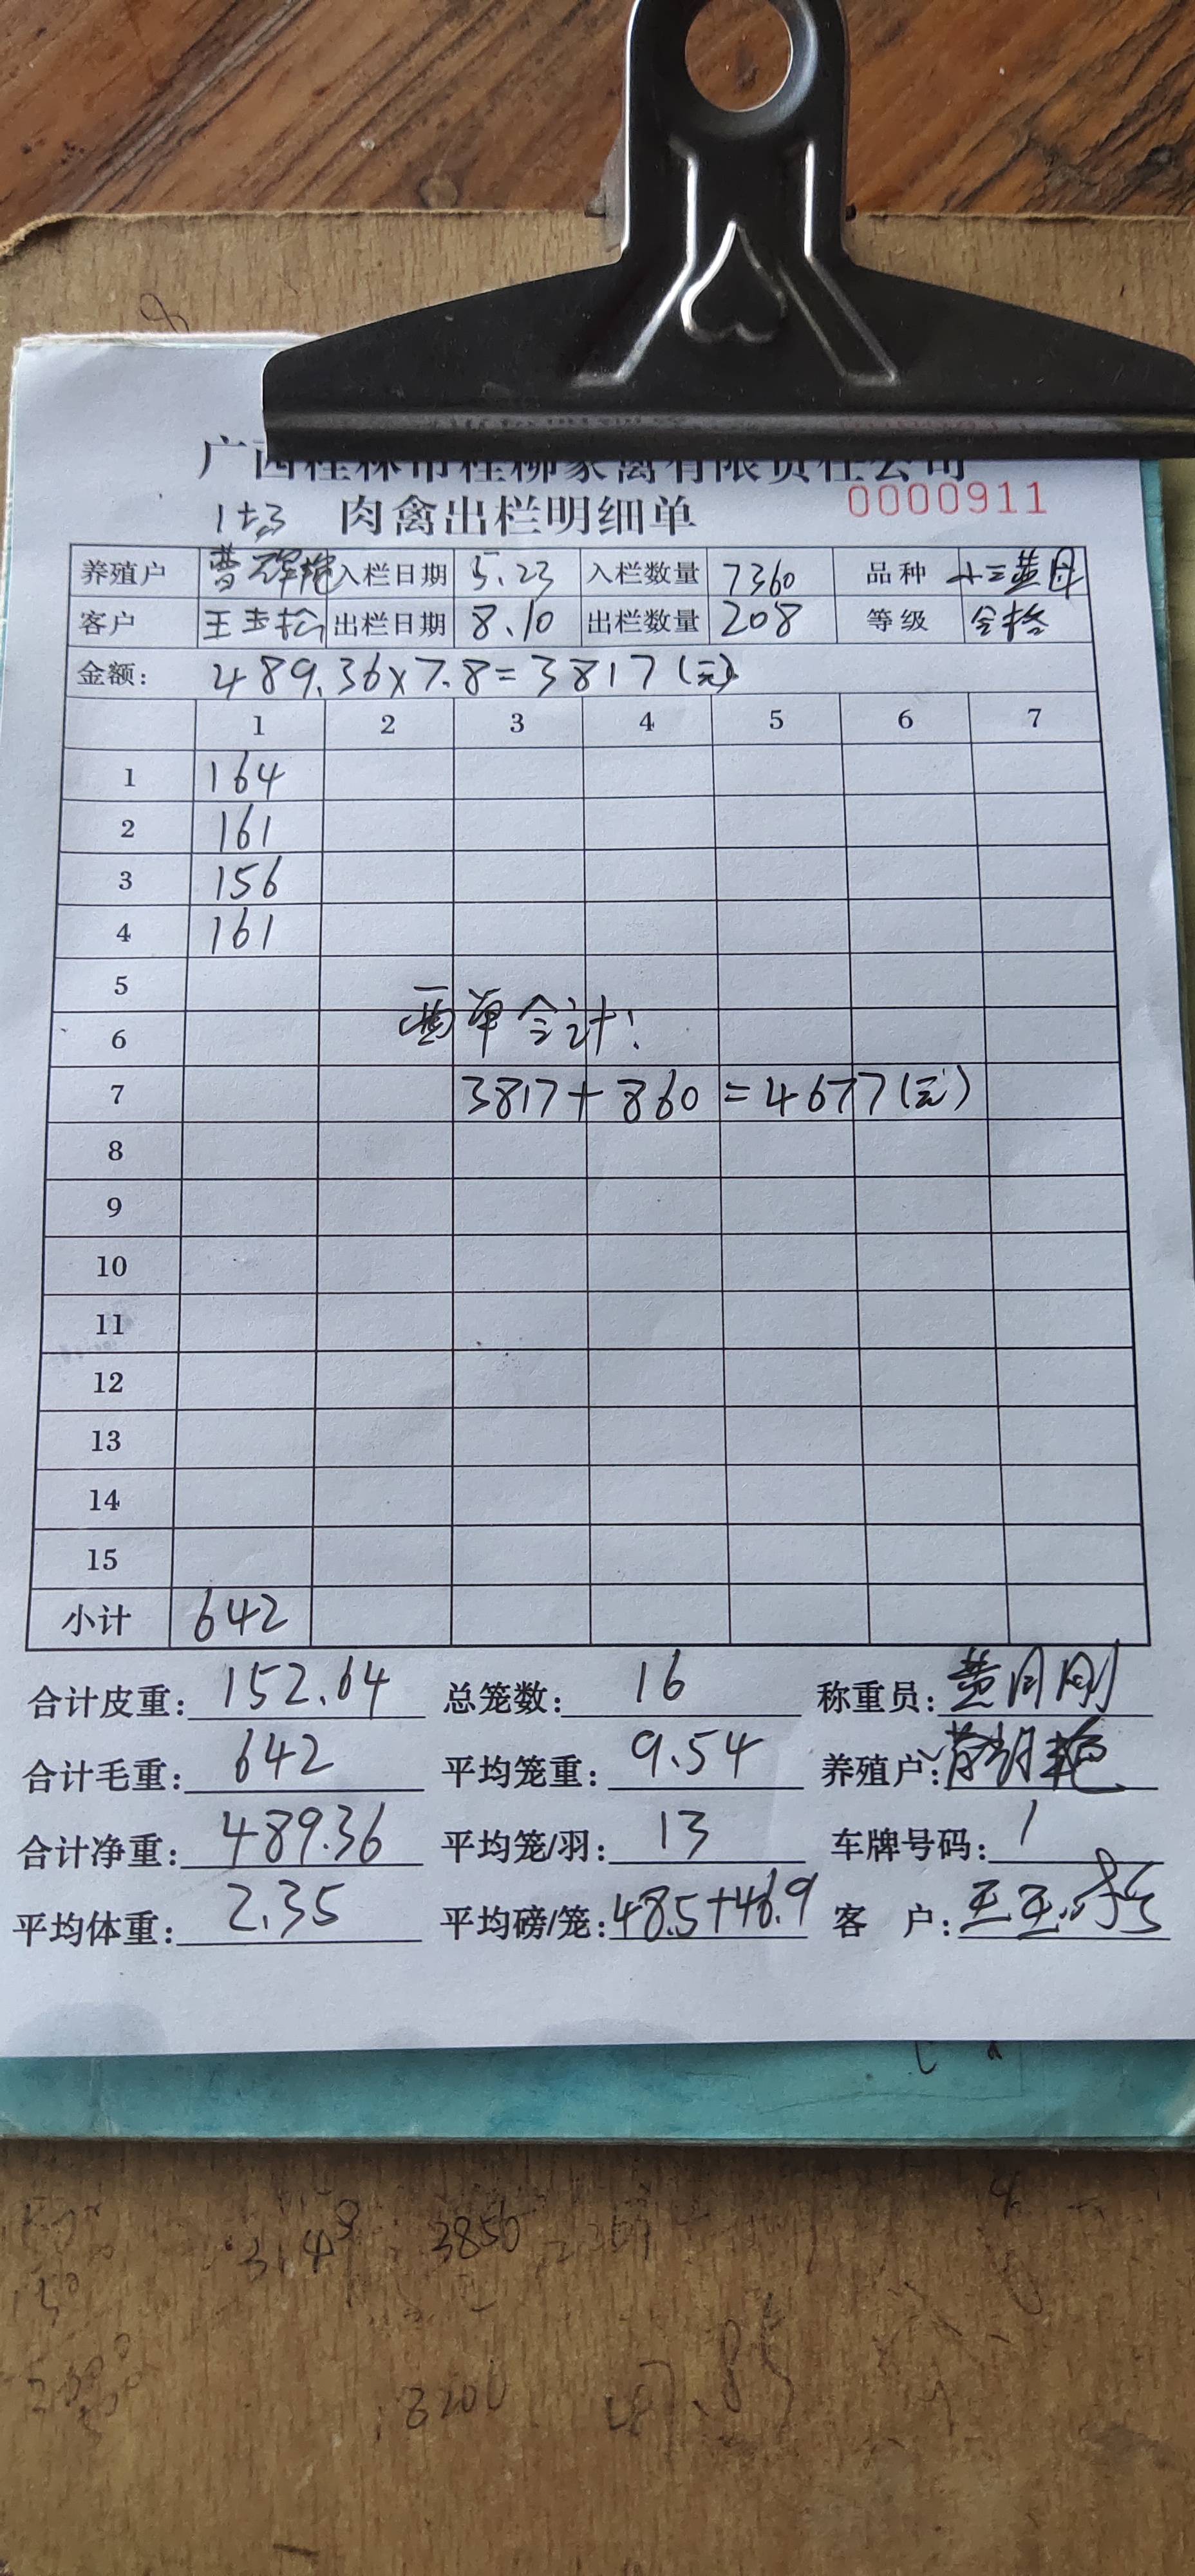 广西桂林市桂柳家禽有限责任公司
肉禽出栏明细单 0000911
养殖户 入栏日期 5.23 入栏数量 7360 品种
客户 王玉松 出栏日期 8.10 出栏数量 208 等级 合格
金额: 489.36×7.8=3817(元)
1 2 3 4 5 6 7
1 164
2 161
3 156
4 161
5
6 两单合计:
7 3817+860=4677(元)
8
9
10
11
12
13
14
15
小计 642
合计皮重: 152.64 总笼数: 16 称重员: 黄月刚
合计毛重: 642 平均笼重: 9.54 养殖户:
合计净重: 489.36 平均笼/羽: 13 车牌号码: 1
平均体重: 2.35 平均磅/笼: 48.5+46.9 客 户: 王玉松
3850
3200